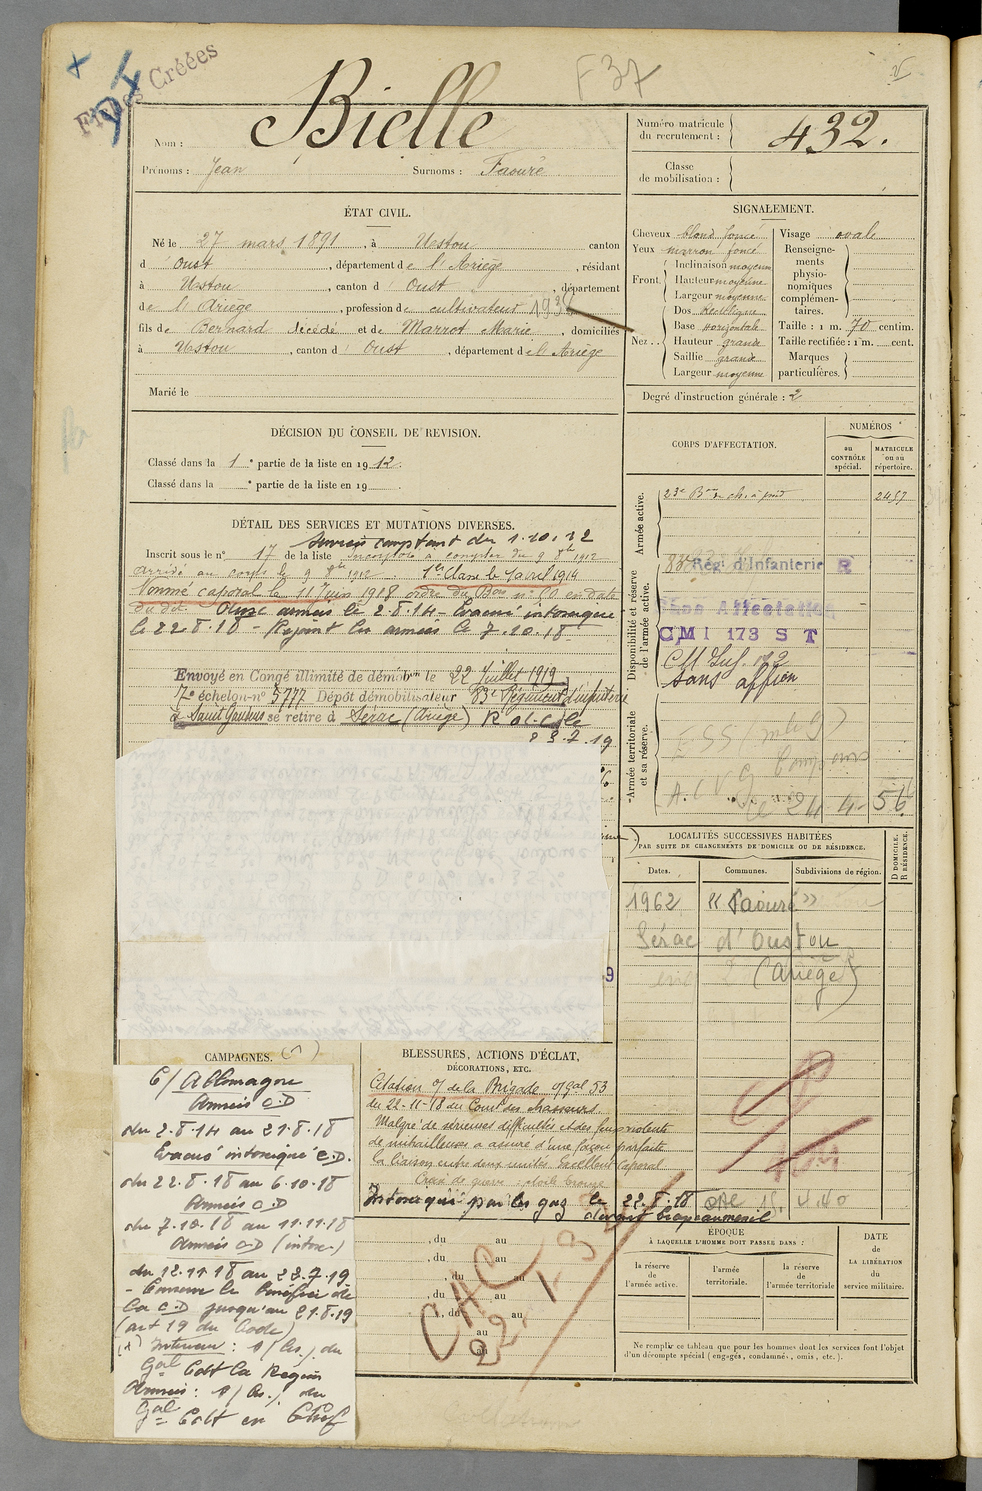 Fiches Créées
F 37
Nom : Bielle
Prénoms : Jean Surnoms : Faouré
Numéro matricule du recrutement : 432.
Classe de mobilisation :
ÉTAT CIVIL.
Né le 27 mars 1891, à Ustou canton
d' Oust, département de l'Ariège, résidant
à Ustou, canton d' Oust, département
de l'Ariège, profession de cultivateur
fils de Bernard décédé et de Marrot Marie, domiciliés
à Ustou, canton d' Oust, département de l'Ariège
Marié le
SIGNALEMENT.
Cheveux blond foncé
Yeux marron foncé
Front Inclinaison moyenne
Hauteur moyenne
Largeur moyenne
Nez Dos Rectiligne
Base horizontale
Hauteur grande
Saillie grande
Largeur moyenne
Visage ovale
Renseignements physionomiques complémentaires.
Taille : 1 m. 70 centim.
Taille rectifiée : 1 m. cent.
Marques particulières.
Degré d'instruction générale : 2
DÉCISION DU CONSEIL DE REVISION.
Classé dans la 1e partie de la liste en 1912.
Classé dans la e partie de la liste en 19
DÉTAIL DES SERVICES ET MUTATIONS DIVERSES.
Services comptant du 1.10.12
Inscrit sous le n° 17 de la liste Incorporé à compter du 9 8bre 1912
arrivé au corps le 9 8bre 1912. 1re Classe le 1 avril 1914
Nommé caporal le 11 Juin 1918 ordre du Bon n° 60 en date
du dit. Aux armées le 2.8.14 - Evacué intoxiqué
le 22.8.18 - Rejoint les armées le 7.10.18
Envoyé en Congé illimité de démobon le 22 Juillet 1919
7e échelon n° 5777 Dépôt démobilisateur 83e Régiment d'infanterie
à Saint Gaudens se retire à Sérac (Ariège)
23.7.19
CORPS D'AFFECTATION.
NUMÉROS
au CONTRÔLE spécial.
MATRICULE ou au répertoire.
Armée active.
23e Bon de ch. à pied 2457
Disponibilité et réserve de l'armée active.
Rég. d'Infanterie R
Sans Affectation
CMI 173 S T
Sans affon
Armée territoriale et sa réserve.
24-4-56
LOCALITÉS SUCCESSIVES HABITÉES
PAR SUITE DE CHANGEMENTS DE DOMICILE OU DE RÉSIDENCE.
Dates. Communes. Subdivisions de région. D DOMICILE. R RÉSIDENCE.
1962 "Faouré"
Sérac d'Oustou
(Ariège)
CAMPAGNES.
C/ Allemagne
Armées C.D
du 2.8.14 au 21.8.18
Evacué intoxiqué C.D.
du 22.8.18 au 6.10.18
Armées C.D
du 7.10.18 au 11.11.18
Armées C.D (intox.)
du 12.11.18 au 22.7.19
- Conserve le bénéfice de
la C.D jusqu'au 21.8.19
(art 19 du Code)
Intérieur :
Gal Cdt la Région
Armées :
Gal Cdt en Chef
BLESSURES, ACTIONS D'ÉCLAT,
DÉCORATIONS, ETC.
Citation o/ de la Brigade o/gal 53
du 22-11-18 du Comt des chasseurs
Malgré de sérieuses difficultés et des feux violents
de mitrailleuses a assuré d'une façon parfaite
la liaison entre deux unités. Excellent Caporal
Croix de guerre : étoile bronze
Intoxiqué par les gaz le 22.8.18
, du au
, du au
, du au
, du au
, du au
au
CAC
ÉPOQUE
À LAQUELLE L'HOMME DOIT PASSER DANS :
la réserve de l'armée active.
l'armée territoriale.
la réserve de l'armée territoriale
DATE DE LA LIBÉRATION du service militaire.
Ne remplir ce tableau que pour les hommes dont les services font l'objet
d'un décompte spécial (engagés, condamnés, omis, etc.)